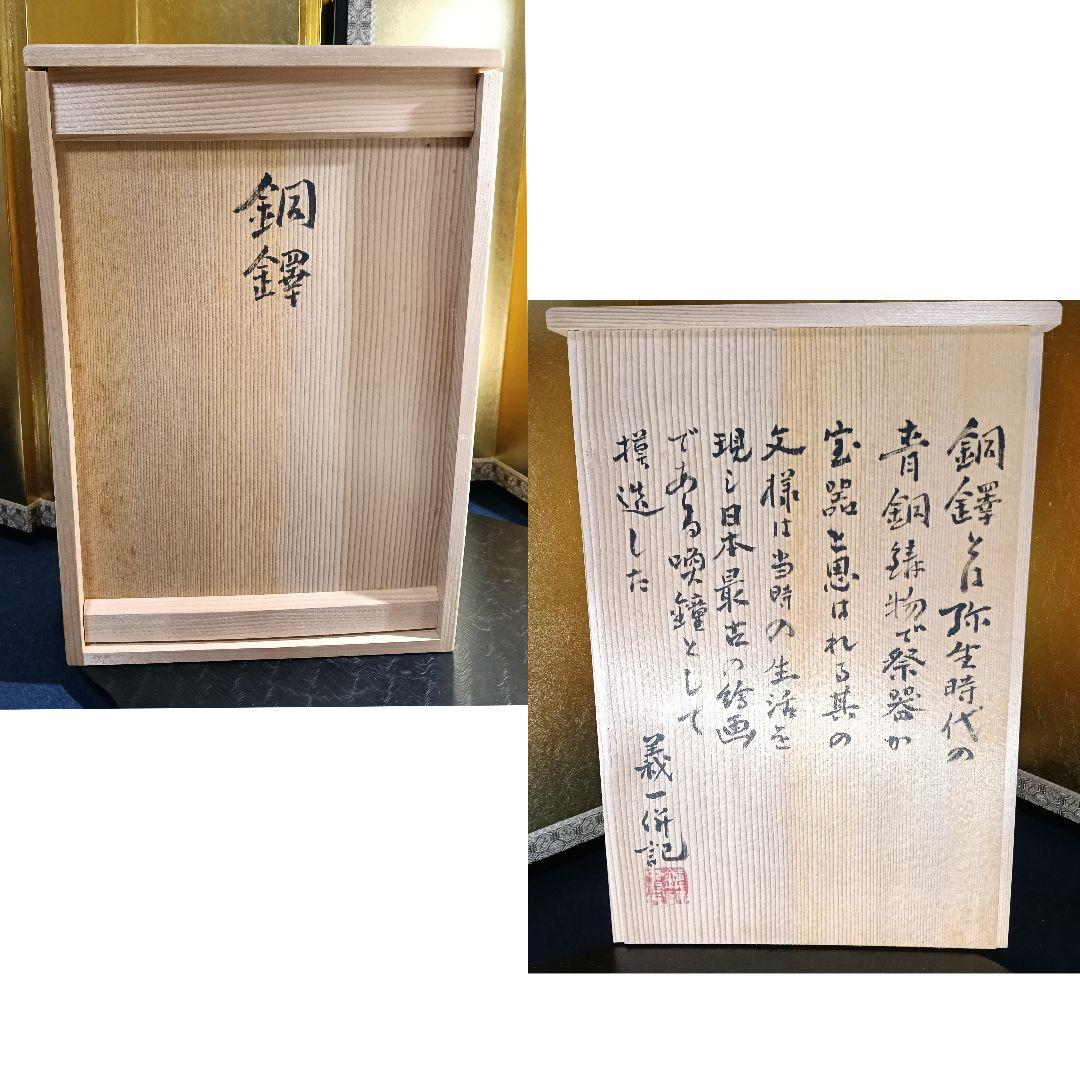 銅鐸
銅鐸とは弥生時代の
青銅鋳物で祭器か
宝器と思はれる其の
文様は当時の生活を
現し日本最古の絵画
である喚鐘として
摸造した
義一併記